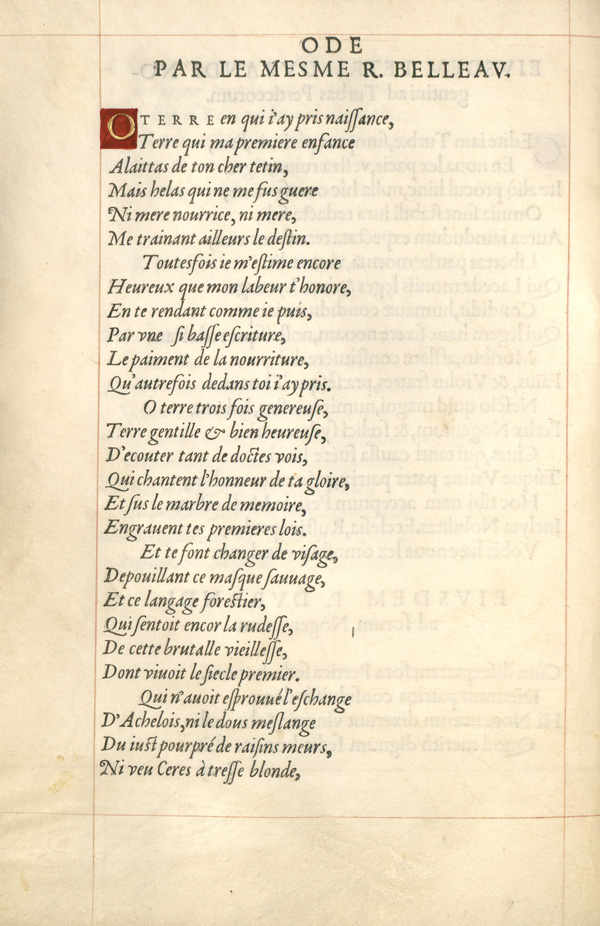 ODE
PAR LE MESME R. BELLEAV.
O TERRE en qui i'ay pris naiſſance,
Terre qui ma premiere enfance
Alaittas de ton cher tetin,
Mais helas qui ne me fus guere
Ni mere nourrice, ni mere,
Me trainant ailleurs le deſtin.
Toutesfois ie m'eſtime encore
Heureux que mon labeur t'honore,
En te rendant comme ie puis,
Par vne ſi baſſe eſcriture,
Le paiment de la nourriture,
Qu'autrefois dedans toi i'ay pris.
O terre trois fois genereuſe,
Terre gentille & bien heureuſe,
D'ecouter tant de doctes vois,
Qui chantent l'honneur de ta gloire,
Et ſus le marbre de memoire,
Engrauent tes premieres lois.
Et te font changer de viſage,
Depouillant ce maſque ſauuage,
Et ce langage foreſtier,
Qui ſentoit encor la rudeſſe,
De cette brutalle vieilleſſe,
Dont viuoit le ſiecle premier.
Qui n'auoit eſprouué l'eſchange
D'Achelois, ni le dous meſlange
Du iuſt pourpré de raiſins meurs,
Ni veu Ceres à treſſe blonde,